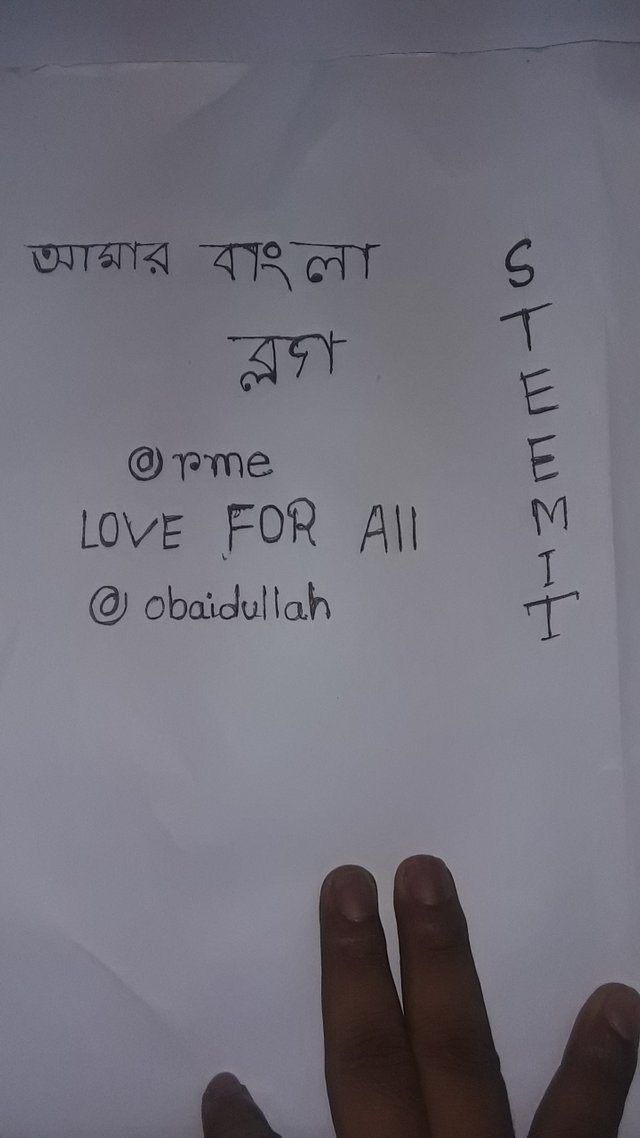 আমার বাংলা
ব্লগ
@rme
LOVE FOR All
@obaidullah
STEEMIT